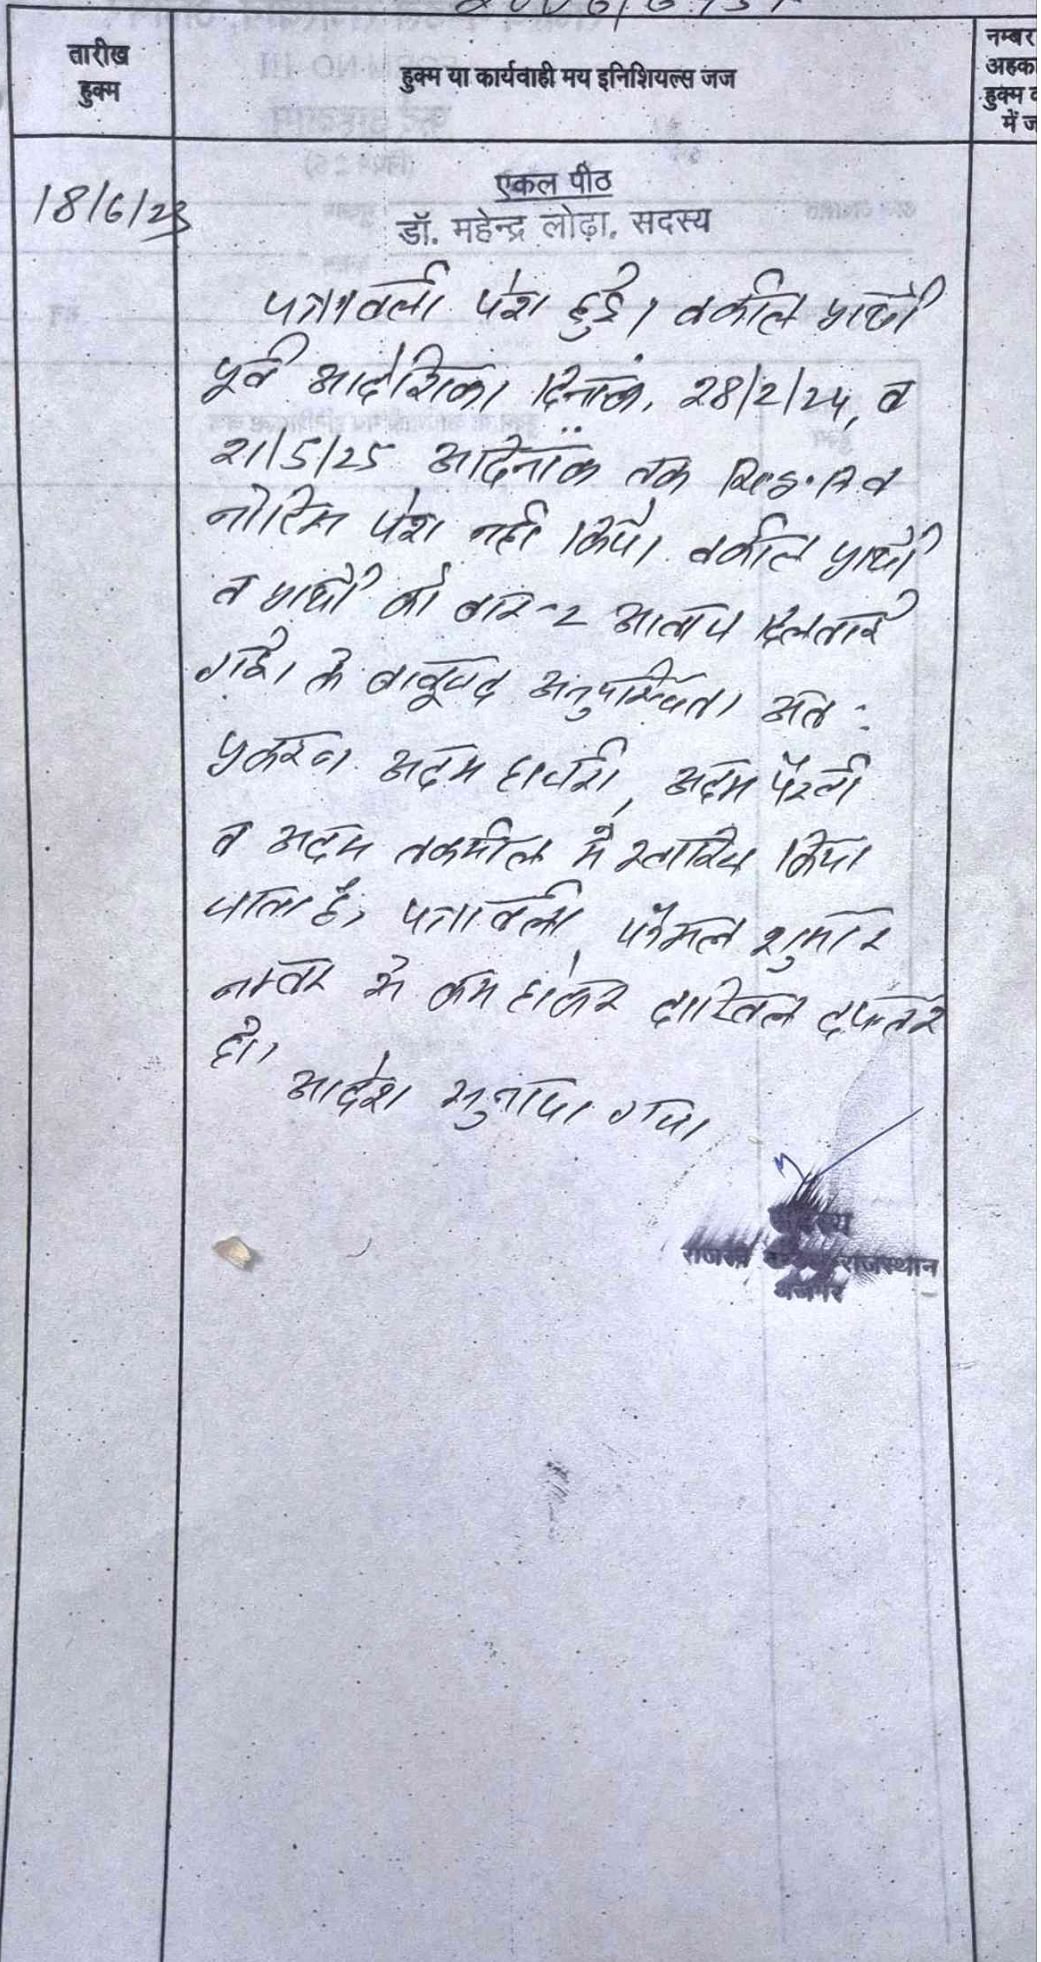 तारीख
हुक्म
हुक्म या कार्यवाही मय इनिशियल्स जज
नम्बर
अहका
हुक्म
में ज
एकल पीठ
18/6/23
डॉ. महेन्द्र लोढ़ा, सदस्य
पत्रावली पेश हुई। वकील प्रार्थी
पूर्व आदेशिका दिनांक, 28/2/24, व
21/5/25 आदिनांक तक Reg. A व
नोटिस पेश नहीं किये। वकील प्रार्थी
व प्रार्थी को बार-2 आवाज दिलवाई
गई। के बावजूद अनुपस्थित। अत:
प्रकरण अदम हाजरी, अदम पैरवी
व अदम तकमील में खारिज किया
जाता है, पत्रावली फैसल शुमार
नम्बर से कम होकर दाखिल दफ्तर
हो,
आदेश सुनाया गया।
सदस्य
राजस्व राजस्थान
अजमेर